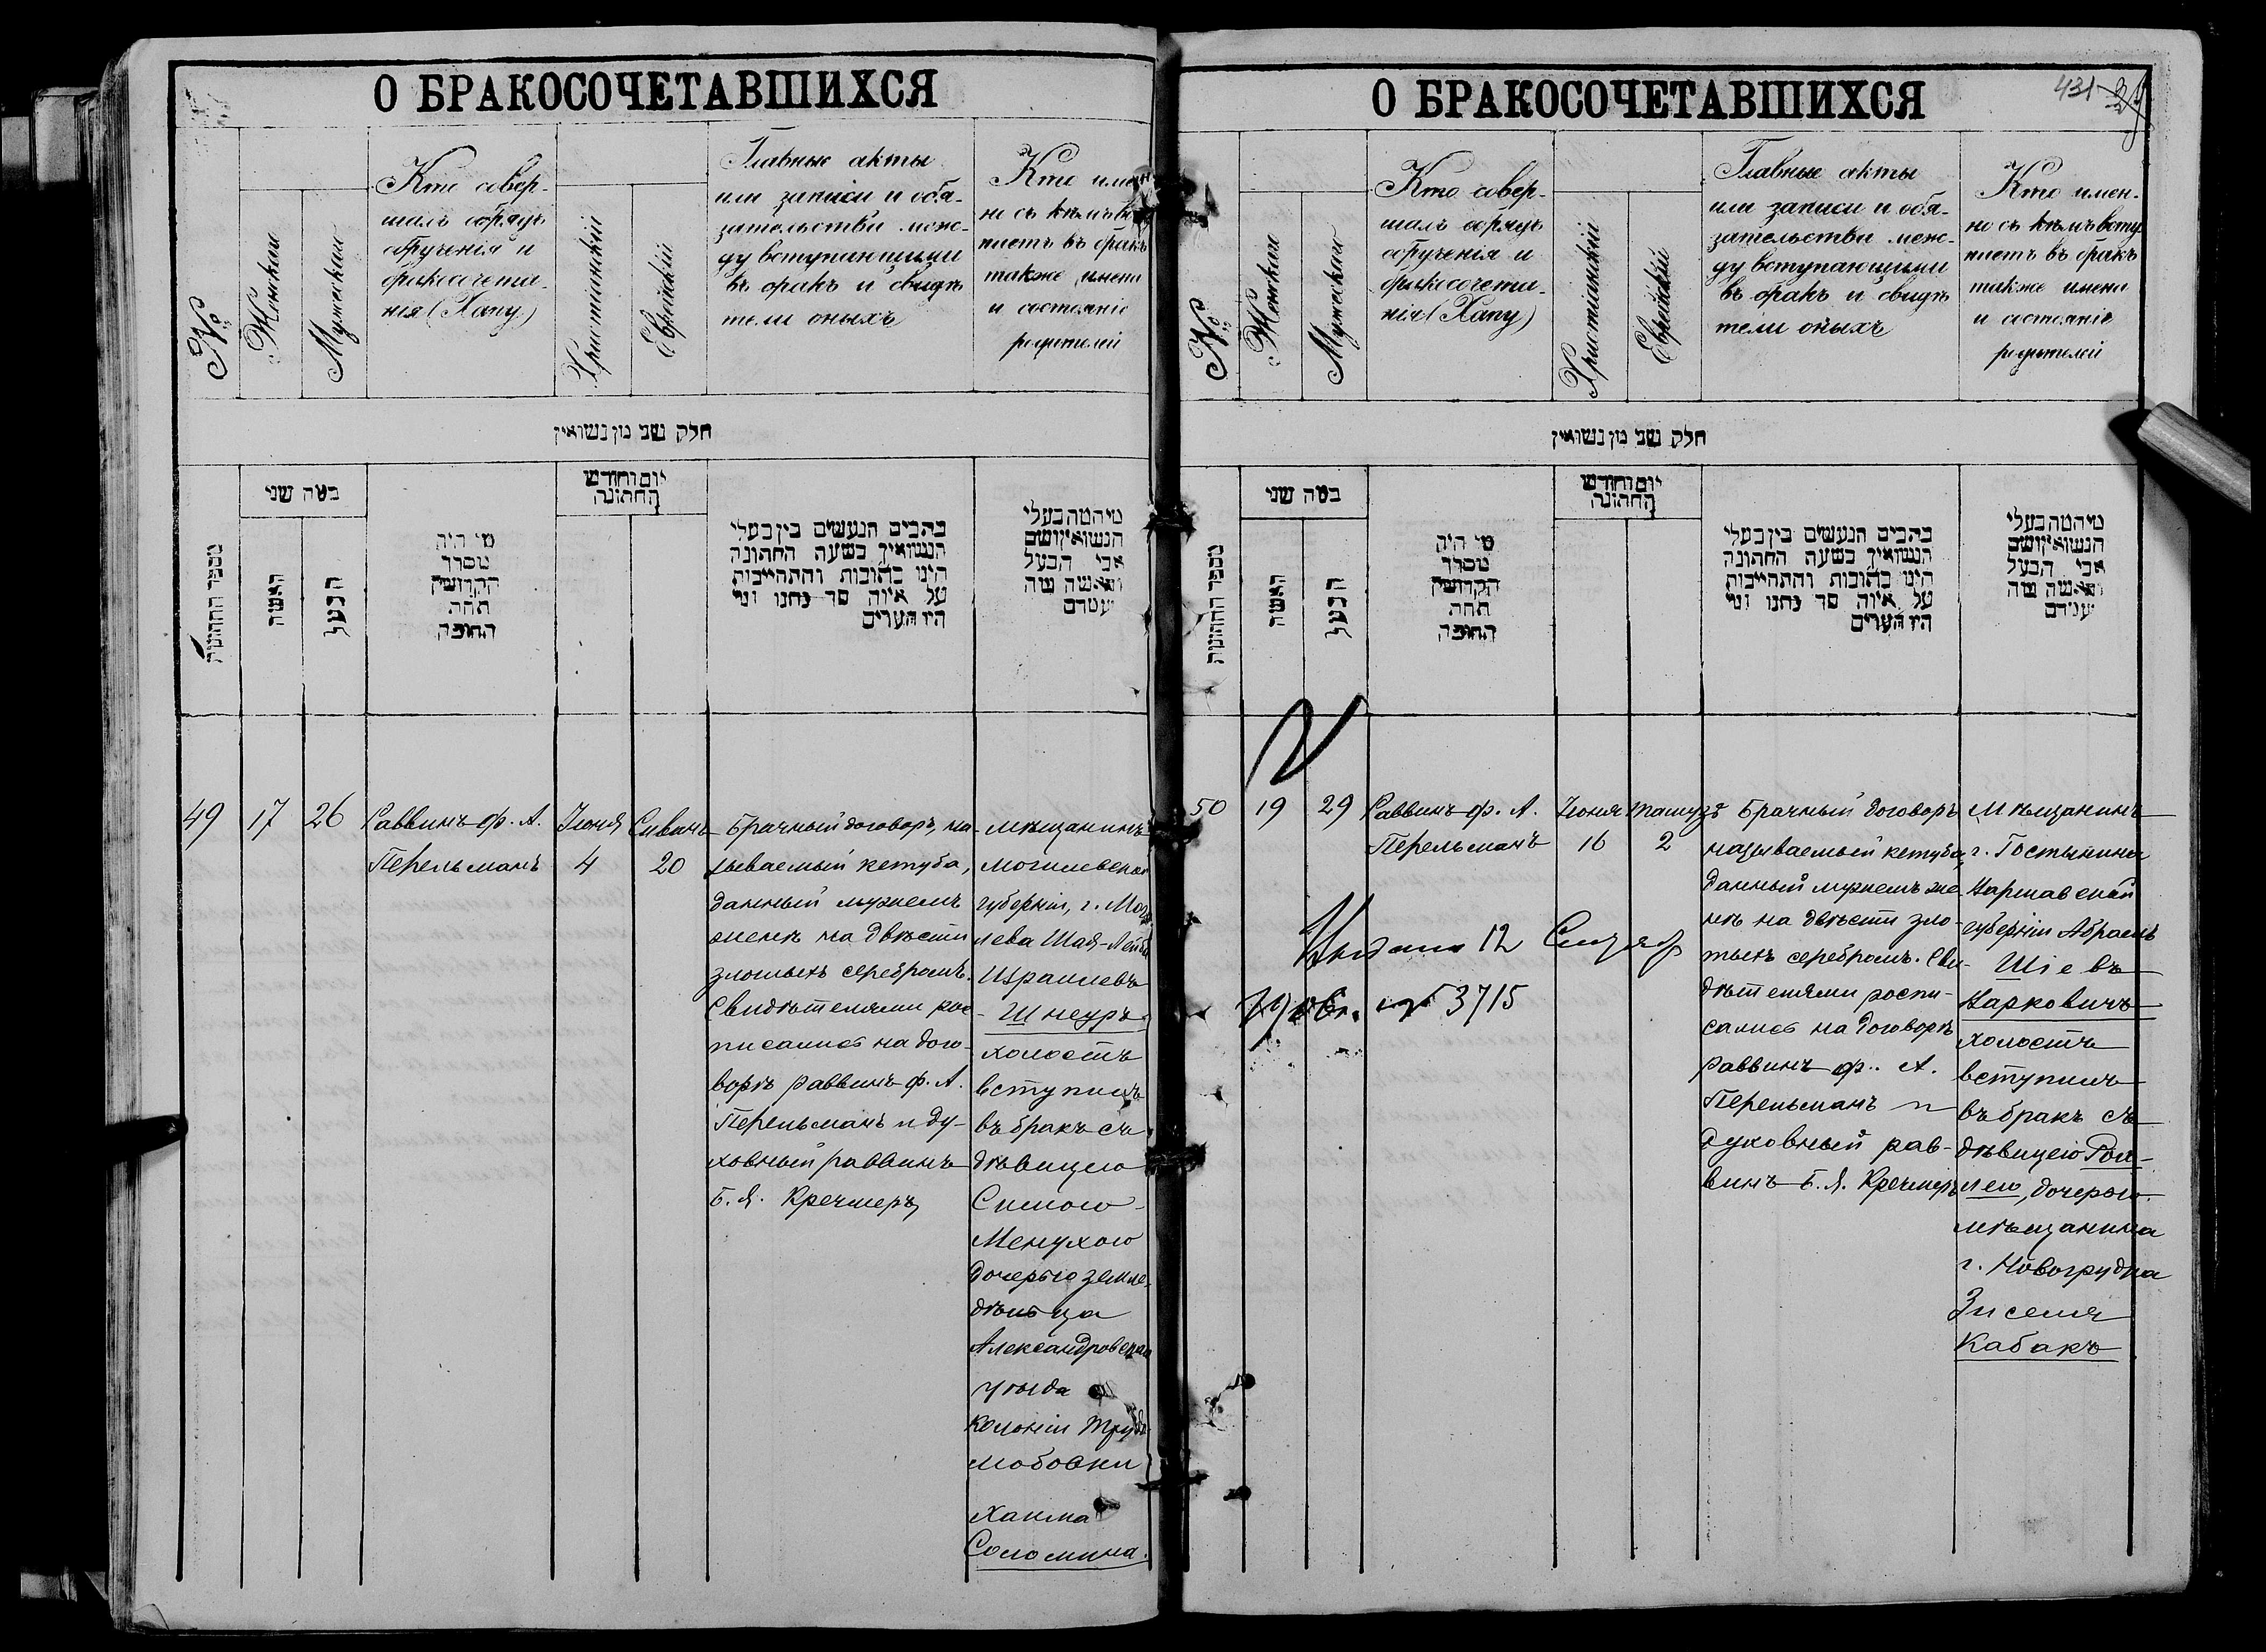 О БРАКОСОЧЕТАВШИХСЯ
№
Женская
Мужеская
Кто совер-
шалъ обрядъ
обрученія и
бракосочета-
нія (Хапу)
Христіанскій
Еврейскій
Главные акты
или записи и обя-
зательства меж-
ду вступающими
въ бракъ и свидѣ
тели оныхъ
Кто имен
но съ кѣмъ вс
паетъ въ бракъ
также имена
и состояніе
родителей
חלק שני מן נשואין
מספר החתונות
כמה שני
האשה
הבעל
מי היה
מסדר
הקדושין
תחת
החופה
יום וחודש
החתונה
כתבים הנעשים בין בעלי
הנשואין בשעת החתונה
היינו כתובות והתחייבות
על איזה סך נתנו ומי
היו העדים
מי המה בעלי
הנשואין ושם
אבי הבעל
והאשה מה
מעמדם
49
17
26
Раввинъ ф. А.
Перельманъ
Іюня
4
Сиванъ
20
Брачный договоръ, на-
зываемый кетуба,
данный мужемъ
женѣ на двѣсти
злотыхъ серебромъ.
Свидѣтелями рос-
писались на дого-
ворѣ раввинъ ф. А.
Перельманъ и ду-
ховный раввинъ
Б. Я. Кречмеръ
Мѣщанинъ
Могилевской
губерніи, г. Моги
лева Шая-Лейба
Израилевъ
Шнеуръ
холостъ
вступилъ
въ бракъ съ
дѣвицею
Симою-
Менухою
дочерью земле-
дѣльца
Александровскаго
уѣзда
колоніи Трудо
любовки
Хаима
Соломина.
О БРАКОСОЧЕТАВШИХСЯ
431
№
Женская
Мужеская
Кто совер-
шалъ обрядъ
обрученія и
бракосочета-
нія (Хапу)
Христіанскій
Еврейскій
Главные акты
или записи и обя-
зательства меж-
ду вступающими
въ бракъ и свидѣ
тели оныхъ
Кто имен-
но съ кѣмъ всту
паетъ въ бракъ
также имена
и состояніе
родителей
חלק שני מן נשואין
מספר החתונות
כמה שני
האשה
הבעל
מי היה
מסדר
הקדושין
תחת
החופה
יום וחודש
החתונה
כתבים הנעשים בין בעלי
הנשואין בשעת החתונה
היינו כתובות והתחייבות
על איזה סך נתנו ומי
היו העדים
מי המה בעלי
הנשואין ושם
אבי הבעל
והאשה מה
מעמדם
50
19
29
Раввинъ ф. А.
Перельманъ
Іюня
16
Тамузъ
2
Брачный договоръ
называемый кетуба,
данный мужемъ же-
нѣ на двѣсти зло-
тыхъ серебромъ. Сви-
дѣтелями роспи-
сались на договорѣ
раввинъ ф. А.
Перельманъ и
духовный рав-
винъ Б. Я. Кречмеръ
Мѣщанинъ
г. Гостынина
Варшавской
губерніи Абрамъ
Шіевъ
Варковичъ
холостъ
вступилъ
въ бракъ съ
дѣвицею Рои-
лею, дочерью
мѣщанина
г. Новогрудка
Зиселя
Кабакъ
12
№ 3715